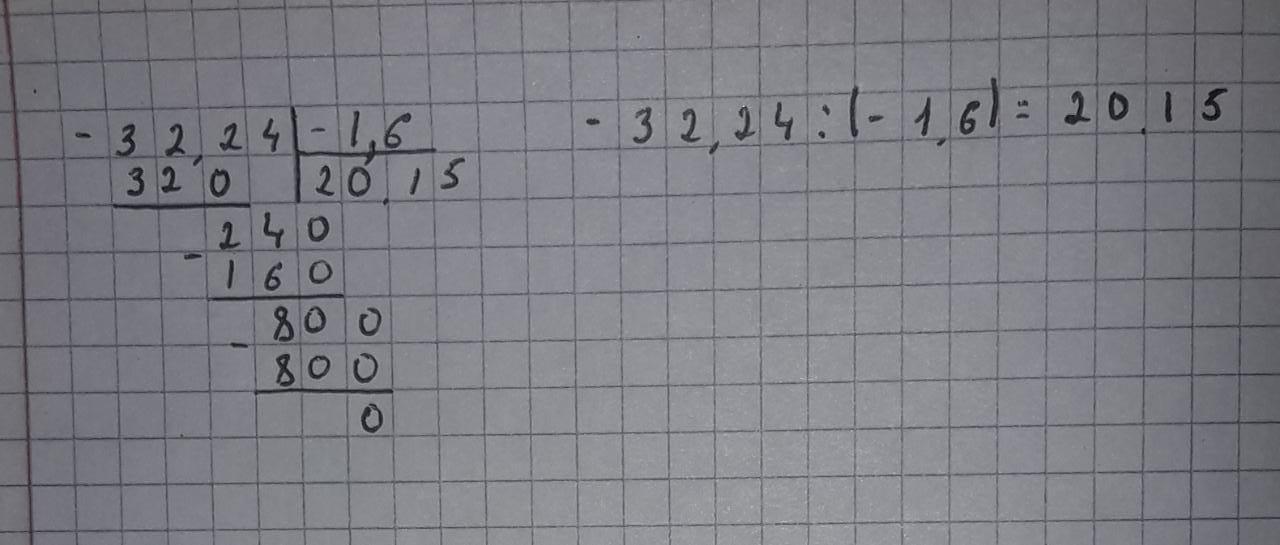 - 32,24 | - 1,6 - 32,24 : (- 1,6) = 20,15
320 | 20,15
240
- 160
800
- 800
0